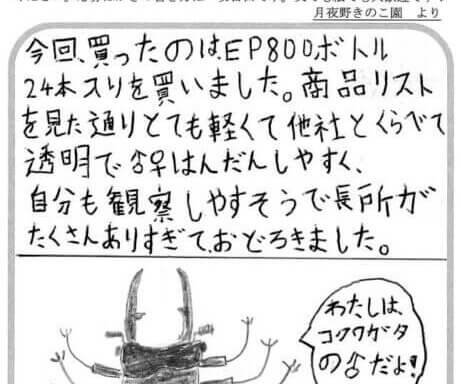 月夜野きのこ園 より
今回、買ったのはEP800ボトル
24本入りを買いました。商品リスト
を見た通りとても軽くて他社とくらべて
透明で♂♀はんだんしやすく、
自分も観察しやすそうで長所が
たくさんありすぎて、おどろきました。
わたしは、
コクワガタ
の♂だよ!